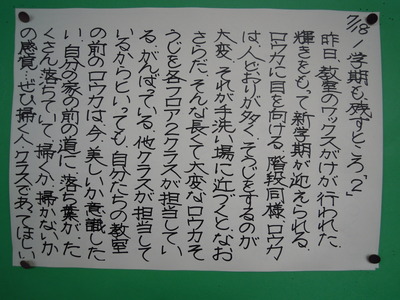 7/18 一学期も残すところ「2」
昨日、教室のワックスがけが行われた。
輝きをもって新学期が迎えられる。
ロウカに目を向ける。階段同様、ロウカ
は、人どおりが多く、そうじをするのが
大変。それが手洗い場に近づくと、なお
さらだ。そんな長くて大変なロウカそ
うじを各フロア2クラスが担当してい
る。がんばっている。他クラスが担当して
いるからといっても、自分たちの教室
の前のロウカは、今、美しいか意識した
い。自分の家の前の道に、落ち葉がた
くさん落ちていて、掃くか、掃かないか
の感覚…ぜひ掃く人・クラスであってほしい